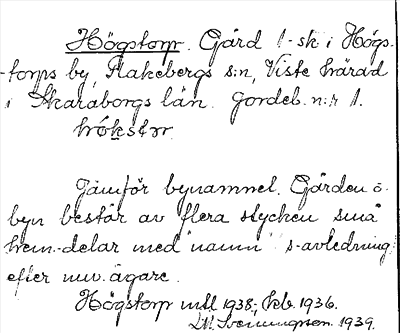 Högstorp. Gård 1 sk i Högs-
-torps by, Flakebergs s:n, Viste härad
i Skaraborgs län. Jordeb. n:r 1.
hǿkstɔr
Jämför bynamnet. Gården o.
byn består av flera stycken små
hem.-delar med namn s-avledning
efter nuv. ägare.
Högstorp mtl 1938; Jkb. 1936.
Svenungsen 1939.